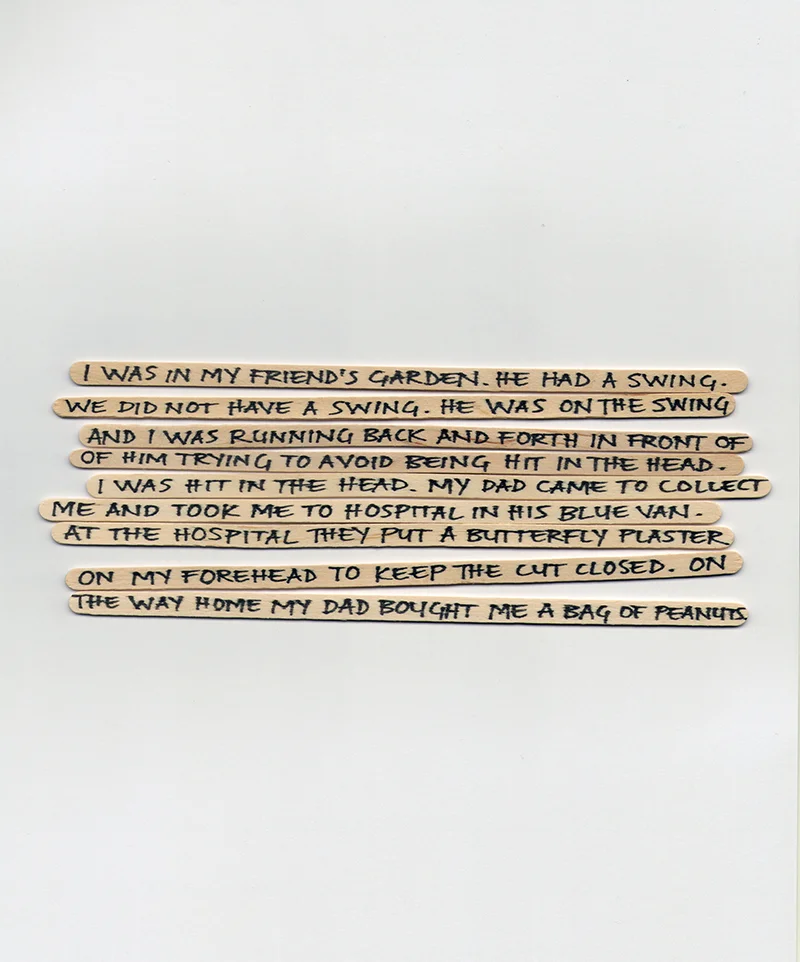 I WAS IN MY FRIEND'S GARDEN. HE HAD A SWING.
WE DID NOT HAVE A SWING. HE WAS ON THE SWING
AND I WAS RUNNING BACK AND FORTH IN FRONT OF
OF HIM TRYING TO AVOID BEING HIT IN THE HEAD.
I WAS HIT IN THE HEAD. MY DAD CAME TO COLLECT
ME AND TOOK ME TO HOSPITAL IN HIS BLUE VAN.
AT THE HOSPITAL THEY PUT A BUTTERFLY PLASTER
ON MY FOREHEAD TO KEEP THE CUT CLOSED. ON
THE WAY HOME MY DAD BOUGHT ME A BAG OF PEANUTS.